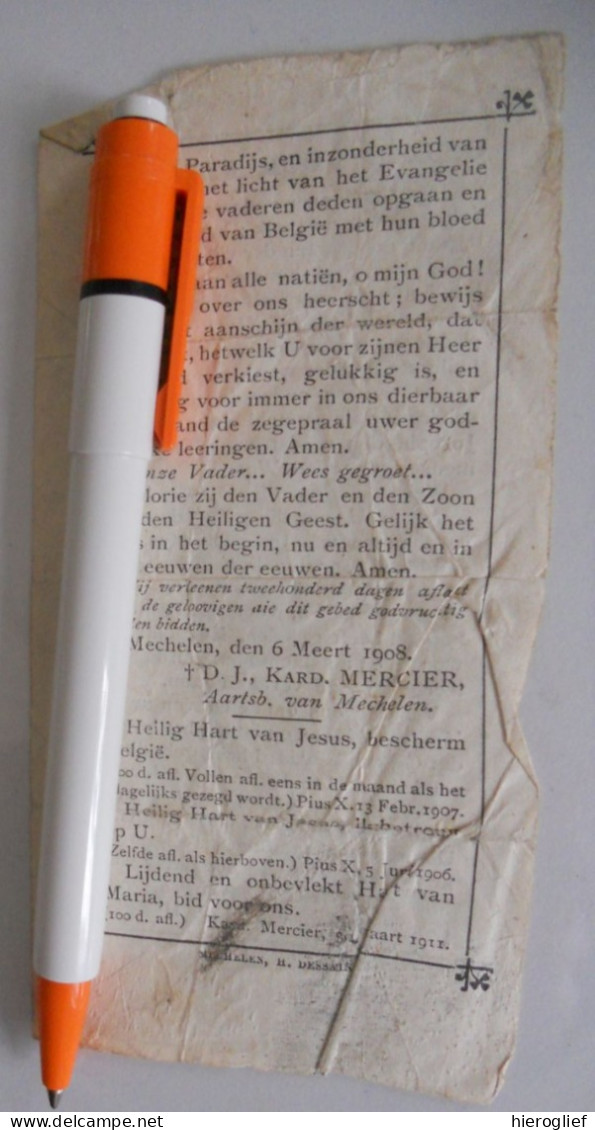 Paradijs, en inzonderheid van
het licht van het Evangelie
vaderen deden opgaan en
van België met hun bloed
ten.
aan alle natiën, o mijn God!
over ons heerscht; bewijs
aanschijn der wereld, dat
, hetwelk U voor zijnen Heer
verkiest, gelukkig is, en
voor immer in ons dierbaar
and de zegepraal uwer god-
ke leeringen. Amen.
nze Vader... Wees gegroet...
lorie zij den Vader en den Zoon
den Heiligen Geest. Gelijk het
s in het begin, nu en altijd en in
eeuwen der eeuwen. Amen.
ij verleenen tweehonderd dagen aflaat
de geloovigen die dit gebed godvruchtig
len bidden.
Mechelen, den 6 Meert 1908.
† D. J., KARD. MERCIER,
Aartsb. van Mechelen.
Heilig Hart van Jesus, bescherm
elgië.
00 d. afl. Vollen afl. eens in de maand als het
dagelijks gezegd wordt.) Pius X. 13 Febr. 1907.
Heilig Hart van Jesus, ik betrouw
p U.
Zelfde afl. als hierboven.) Pius X, 5 Juni 1906.
Lijdend en onbevlekt Hart van
Maria, bid voor ons.
100 d. afl.) Kard. Mercier, aart 1911.
MECHELEN, H. DESSAIN
hieroglief